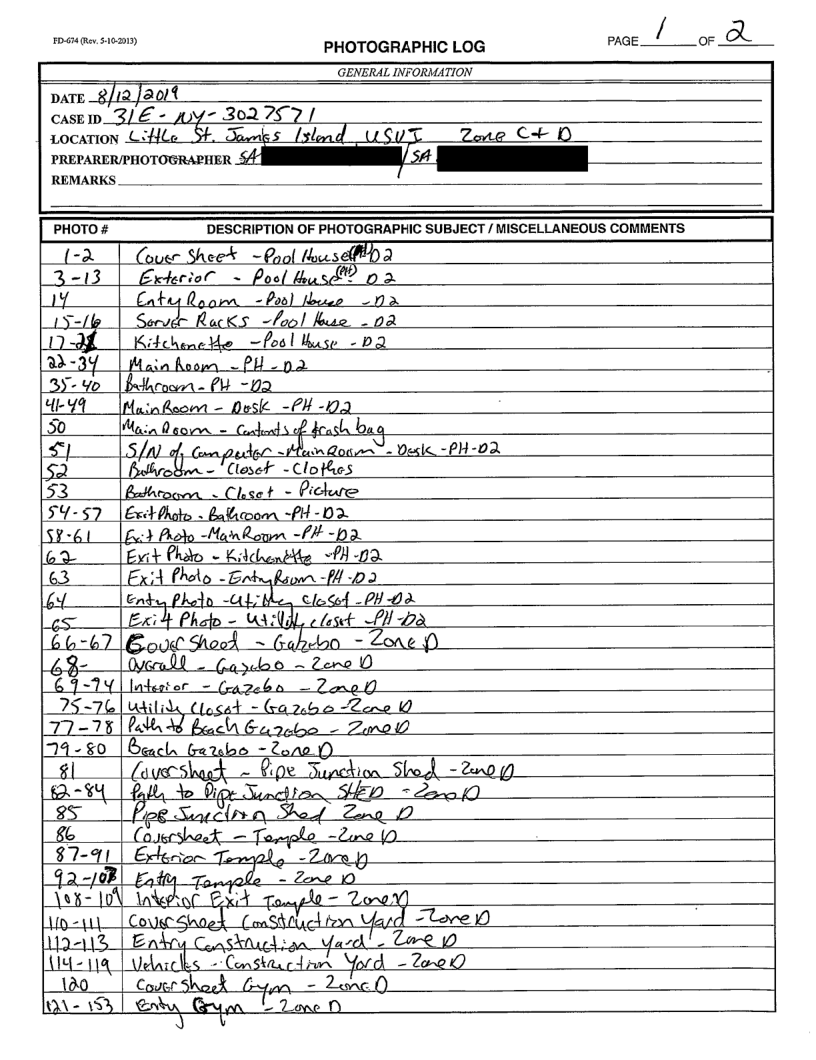 FD-674 (Rev. 5-10-2013)
PHOTOGRAPHIC LOG
PAGE 1 OF 2
GENERAL INFORMATION
DATE 8/12/2019
CASE ID 31E - NY - 3027571
LOCATION Little St. James Island, USVI Zone C + D
PREPARER/PHOTOGRAPHER SA / SA
REMARKS
PHOTO # DESCRIPTION OF PHOTOGRAPHIC SUBJECT / MISCELLANEOUS COMMENTS
1-2 Cover Sheet - Pool House (PH) D2
3-13 Exterior - Pool House (PH) D2
14 Entry Room - Pool House - D2
15-16 Server Racks - Pool House - D2
17-21 Kitchenette - Pool House - D2
22-34 Main Room - PH - D2
35-40 Bathroom - PH - D2
41-49 Main Room - Desk - PH - D2
50 Main Room - Contents of trash bag
51 S/N of Computer - Main Room - Desk - PH - D2
52 Bathroom - Closet - Clothes
53 Bathroom - Closet - Picture
54-57 Exit Photo - Bathroom - PH - D2
58-61 Exit Photo - Main Room - PH - D2
62 Exit Photo - Kitchenette - PH - D2
63 Exit Photo - Entry Room - PH - D2
64 Entry Photo - Utility Closet - PH - D2
65 Exit Photo - Utility closet - PH - D2
66-67 Cover Sheet - Gazebo - Zone D
68- Overall - Gazebo - Zone D
69-74 Interior - Gazebo - Zone D
75-76 Utility Closet - Gazebo - Zone D
77-78 Path to Beach Gazebo - Zone D
79-80 Beach Gazebo - Zone D
81 Coversheet - Pipe Junction Shed - Zone D
82-84 Path to Pipe Junction SHED - Zone D
85 Pipe Junction Shed Zone D
86 Coversheet - Temple - Zone D
87-91 Exterior Temple - Zone D
92-107 Entry Temple - Zone D
108-109 Interior Exit Temple - Zone D
110-111 Cover Sheet Construction Yard - Zone D
112-113 Entry Construction Yard - Zone D
114-119 Vehicles - Construction Yard - Zone D
120 Cover Sheet Gym - Zone D
121-153 Entry Gym - Zone D